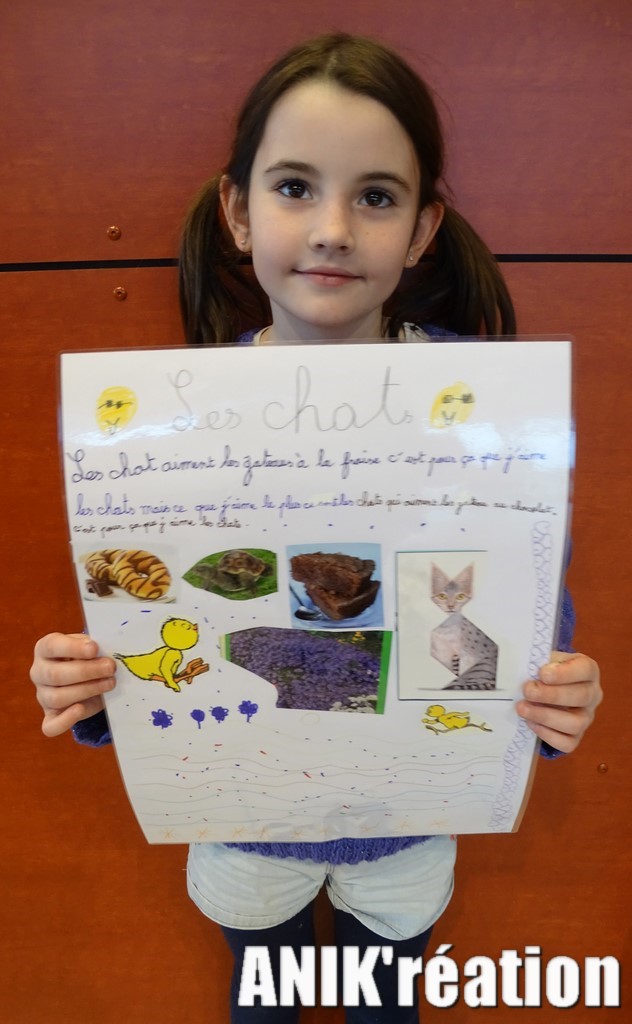 Les chats
Les chat aiment les gateaus à la fraise c'est pour ça que j'aime
les chats mais ce que j'aime le plus ce sont les chats qui aiment les gateau au chocolat.
c'est pour ça que j'aime les chats.
ANIK'réation